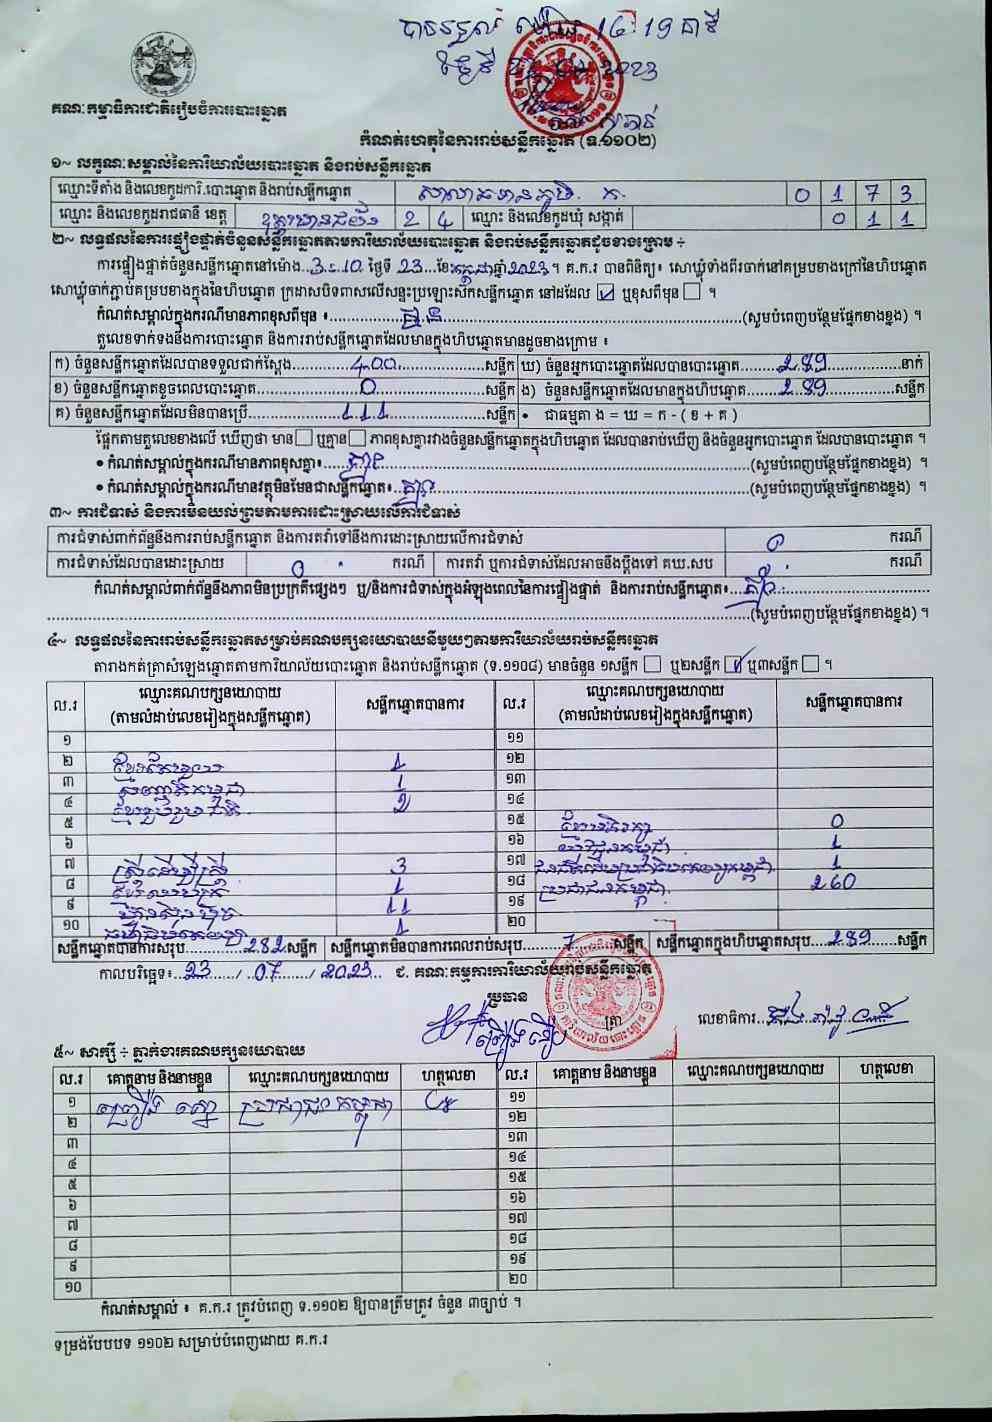 បានទទួល ម៉ោង 16:19 នាទី
ថ្ងៃទី 23 2023
គណៈកម្មាធិការជាតិរៀបចំការបោះឆ្នោត
កំណត់ហេតុនៃការរាប់សន្លឹកឆ្នោត (ទ.១១០២)
១~ លក្ខណៈសម្គាល់នៃការិយាល័យបោះឆ្នោត និងរាប់សន្លឹកឆ្នោត
ឈ្មោះទីតាំង និងលេខកូដការិ.បោះឆ្នោត និងរាប់សន្លឹកឆ្នោត សាលាឆទានភូមិ ក. 0 1 7 3
ឈ្មោះ និងលេខកូដរាជធានី ខេត្ត ឧត្តរមានជ័យ 2 4 ឈ្មោះ និងលេខកូដឃុំ សង្កាត់ 0 1 1
២~ លទ្ធផលនៃការផ្ទៀងផ្ទាត់ចំនួនសន្លឹកឆ្នោតតាមការិយាល័យបោះឆ្នោត និងរាប់សន្លឹកឆ្នោតដូចខាងក្រោម ÷
ការផ្ទៀងផ្ទាត់ចំនួនសន្លឹកឆ្នោតនៅម៉ោង..3:10 ថ្ងៃទី 23...ខែកក្កដាឆ្នាំ2023។ គ.ក.រ បានពិនិត្យ៖ សោឃ្លុំទាំងពីរចាក់នៅគម្របខាងក្រៅនៃហិបឆ្នោត
សោឃ្លុំចាក់ភ្ជាប់គម្របខាងក្នុងនៃហិបឆ្នោត ក្រដាសបិទពាសលើសន្ទះប្រឡោះសឹកសន្លឹកឆ្នោត នៅដដែល ☑ ឬខុសពីមុន ☐ ។
កំណត់សម្គាល់ក្នុងករណីមានភាពខុសពីមុន ៖ គ្មាន (សូមបំពេញបន្ថែមផ្នែកខាងខ្នង) ។
តួលេខទាក់ទងនឹងការបោះឆ្នោត និងការរាប់សន្លឹកឆ្នោតដែលមានក្នុងហិបឆ្នោតមានដូចខាងក្រោម ៖
ក) ចំនួនសន្លឹកឆ្នោតដែលបានទទួលជាក់ស្តែង 400 សន្លឹក ឃ) ចំនួនអ្នកបោះឆ្នោតដែលបានបោះឆ្នោត 289 នាក់
ខ) ចំនួនសន្លឹកឆ្នោតខូចពេលបោះឆ្នោត 0 សន្លឹក ង) ចំនួនសន្លឹកឆ្នោតដែលមានក្នុងហិបឆ្នោត 289 សន្លឹក
គ) ចំនួនសន្លឹកឆ្នោតដែលមិនបានប្រើ 111 សន្លឹក • ជាធម្មតា ង = ឃ = ក - ( ខ + គ )
ផ្អែកតាមតួលេខខាងលើ ឃើញថា មាន ☐ ឬគ្មាន ☐ ភាពខុសគ្នារវាងចំនួនសន្លឹកឆ្នោតក្នុងហិបឆ្នោត ដែលបានរាប់ឃើញ និងចំនួនអ្នកបោះឆ្នោត ដែលបានបោះឆ្នោត ។
• កំណត់សម្គាល់ក្នុងករណីមានភាពខុសគ្នា៖ គ្មាន (សូមបំពេញបន្ថែមផ្នែកខាងខ្នង) ។
• កំណត់សម្គាល់ក្នុងករណីមានវត្ថុមិនមែនជាសន្លឹកឆ្នោត៖ គ្មាន (សូមបំពេញបន្ថែមផ្នែកខាងខ្នង) ។
៣~ ការជំទាស់ និងការមិនយល់ព្រមតាមការដោះស្រាយលើការជំទាស់
ការជំទាស់ពាក់ព័ន្ធនឹងការរាប់សន្លឹកឆ្នោត និងការតវ៉ាទៅនឹងការដោះស្រាយលើការជំទាស់ 0 ករណី
ការជំទាស់ដែលបានដោះស្រាយ 0 ករណី ការតវ៉ា ឬការជំទាស់ដែលអាចនឹងប្តឹងទៅ គឃ.សប ករណី
កំណត់សម្គាល់ពាក់ព័ន្ធនឹងភាពមិនប្រក្រតីផ្សេងៗ ឬ/និងការជំទាស់ក្នុងអំឡុងពេលនៃការផ្ទៀងផ្ទាត់ និងការរាប់សន្លឹកឆ្នោត៖ គ្មាន
(សូមបំពេញបន្ថែមផ្នែកខាងខ្នង) ។
៤~ លទ្ធផលនៃការរាប់សន្លឹកឆ្នោតសម្រាប់គណបក្សនយោបាយនីមួយៗតាមការិយាល័យរាប់សន្លឹកឆ្នោត
តារាងកត់ត្រាសំឡេងឆ្នោតតាមការិយាល័យបោះឆ្នោត និងរាប់សន្លឹកឆ្នោត (ទ.១១០៨) មានចំនួន ១សន្លឹក ☐ ឬ២សន្លឹក ☑ ឬ៣សន្លឹក ☐ ។
ល.រ ឈ្មោះគណបក្សនយោបាយ (តាមលំដាប់លេខរៀងក្នុងសន្លឹកឆ្នោត) សន្លឹកឆ្នោតបានការ ល.រ ឈ្មោះគណបក្សនយោបាយ (តាមលំដាប់លេខរៀងក្នុងសន្លឹកឆ្នោត) សន្លឹកឆ្នោតបានការ
១ ១១
២ 1 ១២
៣ 1 ១៣
៤ ខ្មែររួបរួមជាតិ 2 ១៤
៥ ១៥ 0
៦ ១៦ 1
៧ ស្ត្រីដើម្បីស្ត្រី 3 ១៧ 1
៨ 1 ១៨ ប្រជាជនកម្ពុជា 260
៩ ហ៊្វុនស៊ិនប៉ិច 11 ១៩
១០ ធម្មាធិបតេយ្យ 1 ២០
សន្លឹកឆ្នោតបានការសរុប 282 សន្លឹក សន្លឹកឆ្នោតមិនបានការពេលរាប់សរុប 7 សន្លឹក សន្លឹកឆ្នោតក្នុងហិបឆ្នោតសរុប 289 សន្លឹក
កាលបរិច្ឆេទ៖ 23 / 07 / 2023 ជ. គណៈកម្មការការិយាល័យរាប់សន្លឹកឆ្នោត
ប្រធាន
ត្រា
លេខាធិការ
៥~ សាក្សី ÷ ភ្នាក់ងារគណបក្សនយោបាយ
ល.រ គោត្តនាម និងនាមខ្លួន ឈ្មោះគណបក្សនយោបាយ ហត្ថលេខា ល.រ គោត្តនាម និងនាមខ្លួន ឈ្មោះគណបក្សនយោបាយ ហត្ថលេខា
១ ប្រជាជនកម្ពុជា ១១
២ ១២
៣ ១៣
៤ ១៤
៥ ១៥
៦ ១៦
៧ ១៧
៨ ១៨
៩ ១៩
១០ ២០
កំណត់សម្គាល់ ៖ គ.ក.រ ត្រូវបំពេញ ទ.១១០២ ឱ្យបានត្រឹមត្រូវ ចំនួន ៣ច្បាប់ ។
ទម្រង់បែបបទ ១១០២ សម្រាប់បំពេញដោយ គ.ក.រ